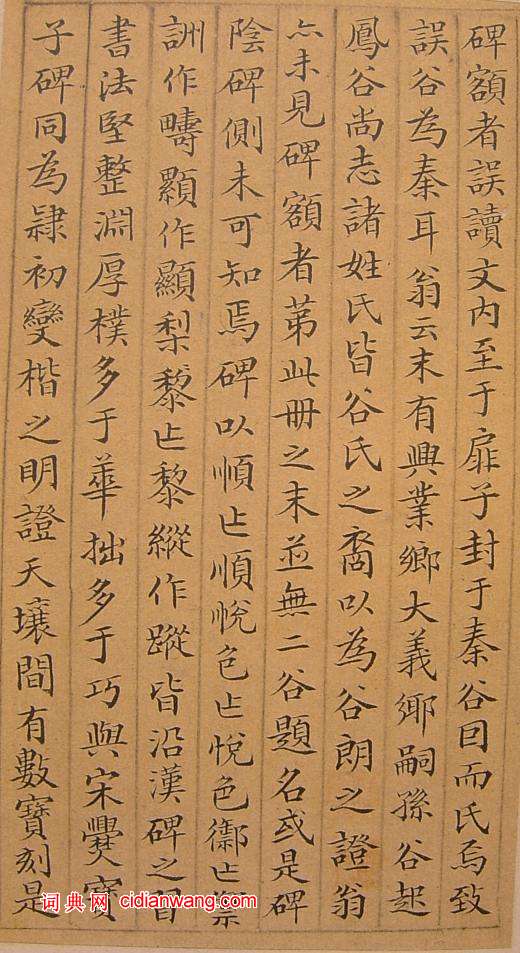 碑額者誤讀文內至于扉子封于秦谷因而氏焉致
誤谷為秦耳翁云末有興業鄉大義鄉嗣孫谷起
鳳谷尚志諸姓氏皆谷氏之裔以為谷朗之證翁
亦未見碑額者苐此冊之末並無二谷題名或是碑
陰碑側未可知焉碑以愼作順悅色作悅色禦作禦
詶作疇顯作顯梨黎作黎縱作蹤皆沿漢碑之習
書法堅整淵厚樸多于華拙多于巧與宋爨寶
子碑同為隷初變楷之明證天壤間有數寶刻是
词典网 cidianwang.com